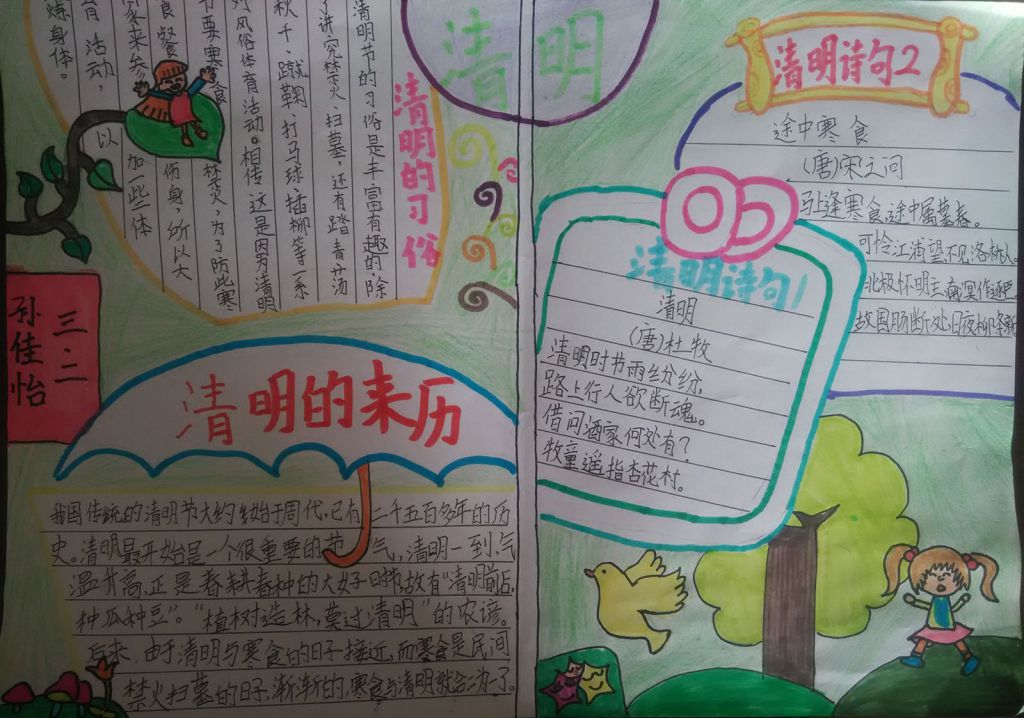 清明
清明的习俗
清明节的习俗是丰富有趣的除
了讲究禁火、扫墓,还有踏青荡
秋千、蹴鞠、打马球、插柳等一系
列风俗体育活动。相传这是因为清明
节要寒食禁火,为了防此寒
食餐伤身,所以大
家来参加一些体
育活动,以
炼身体。
三二
孙佳怡
清明的来历
我国传统的清明节大约始于周代,已有二千五百多年的历
史。清明最开始是一个很重要的节气,清明一到,气
温升高,正是春耕春种的大好日节,故有“清明前后,
种瓜种豆”。“植树造林,莫过清明”的农谚。
后来,由于清明与寒食的日子接近,而寒食是民间
禁火扫墓的日子,渐渐的,寒食与清明就合二为一了。
清明诗句1
清明
(唐)杜牧
清明时节雨纷纷,
路上行人欲断魂。
借问酒家何处有?
牧童遥指杏花村。
清明诗句2
途中寒食
(唐)宋之问
马上逢寒食,途中属暮春。
可怜江浦望不见洛桥人。
北极怀明主,南溟作逐臣
故园肠断处日夜柳条新